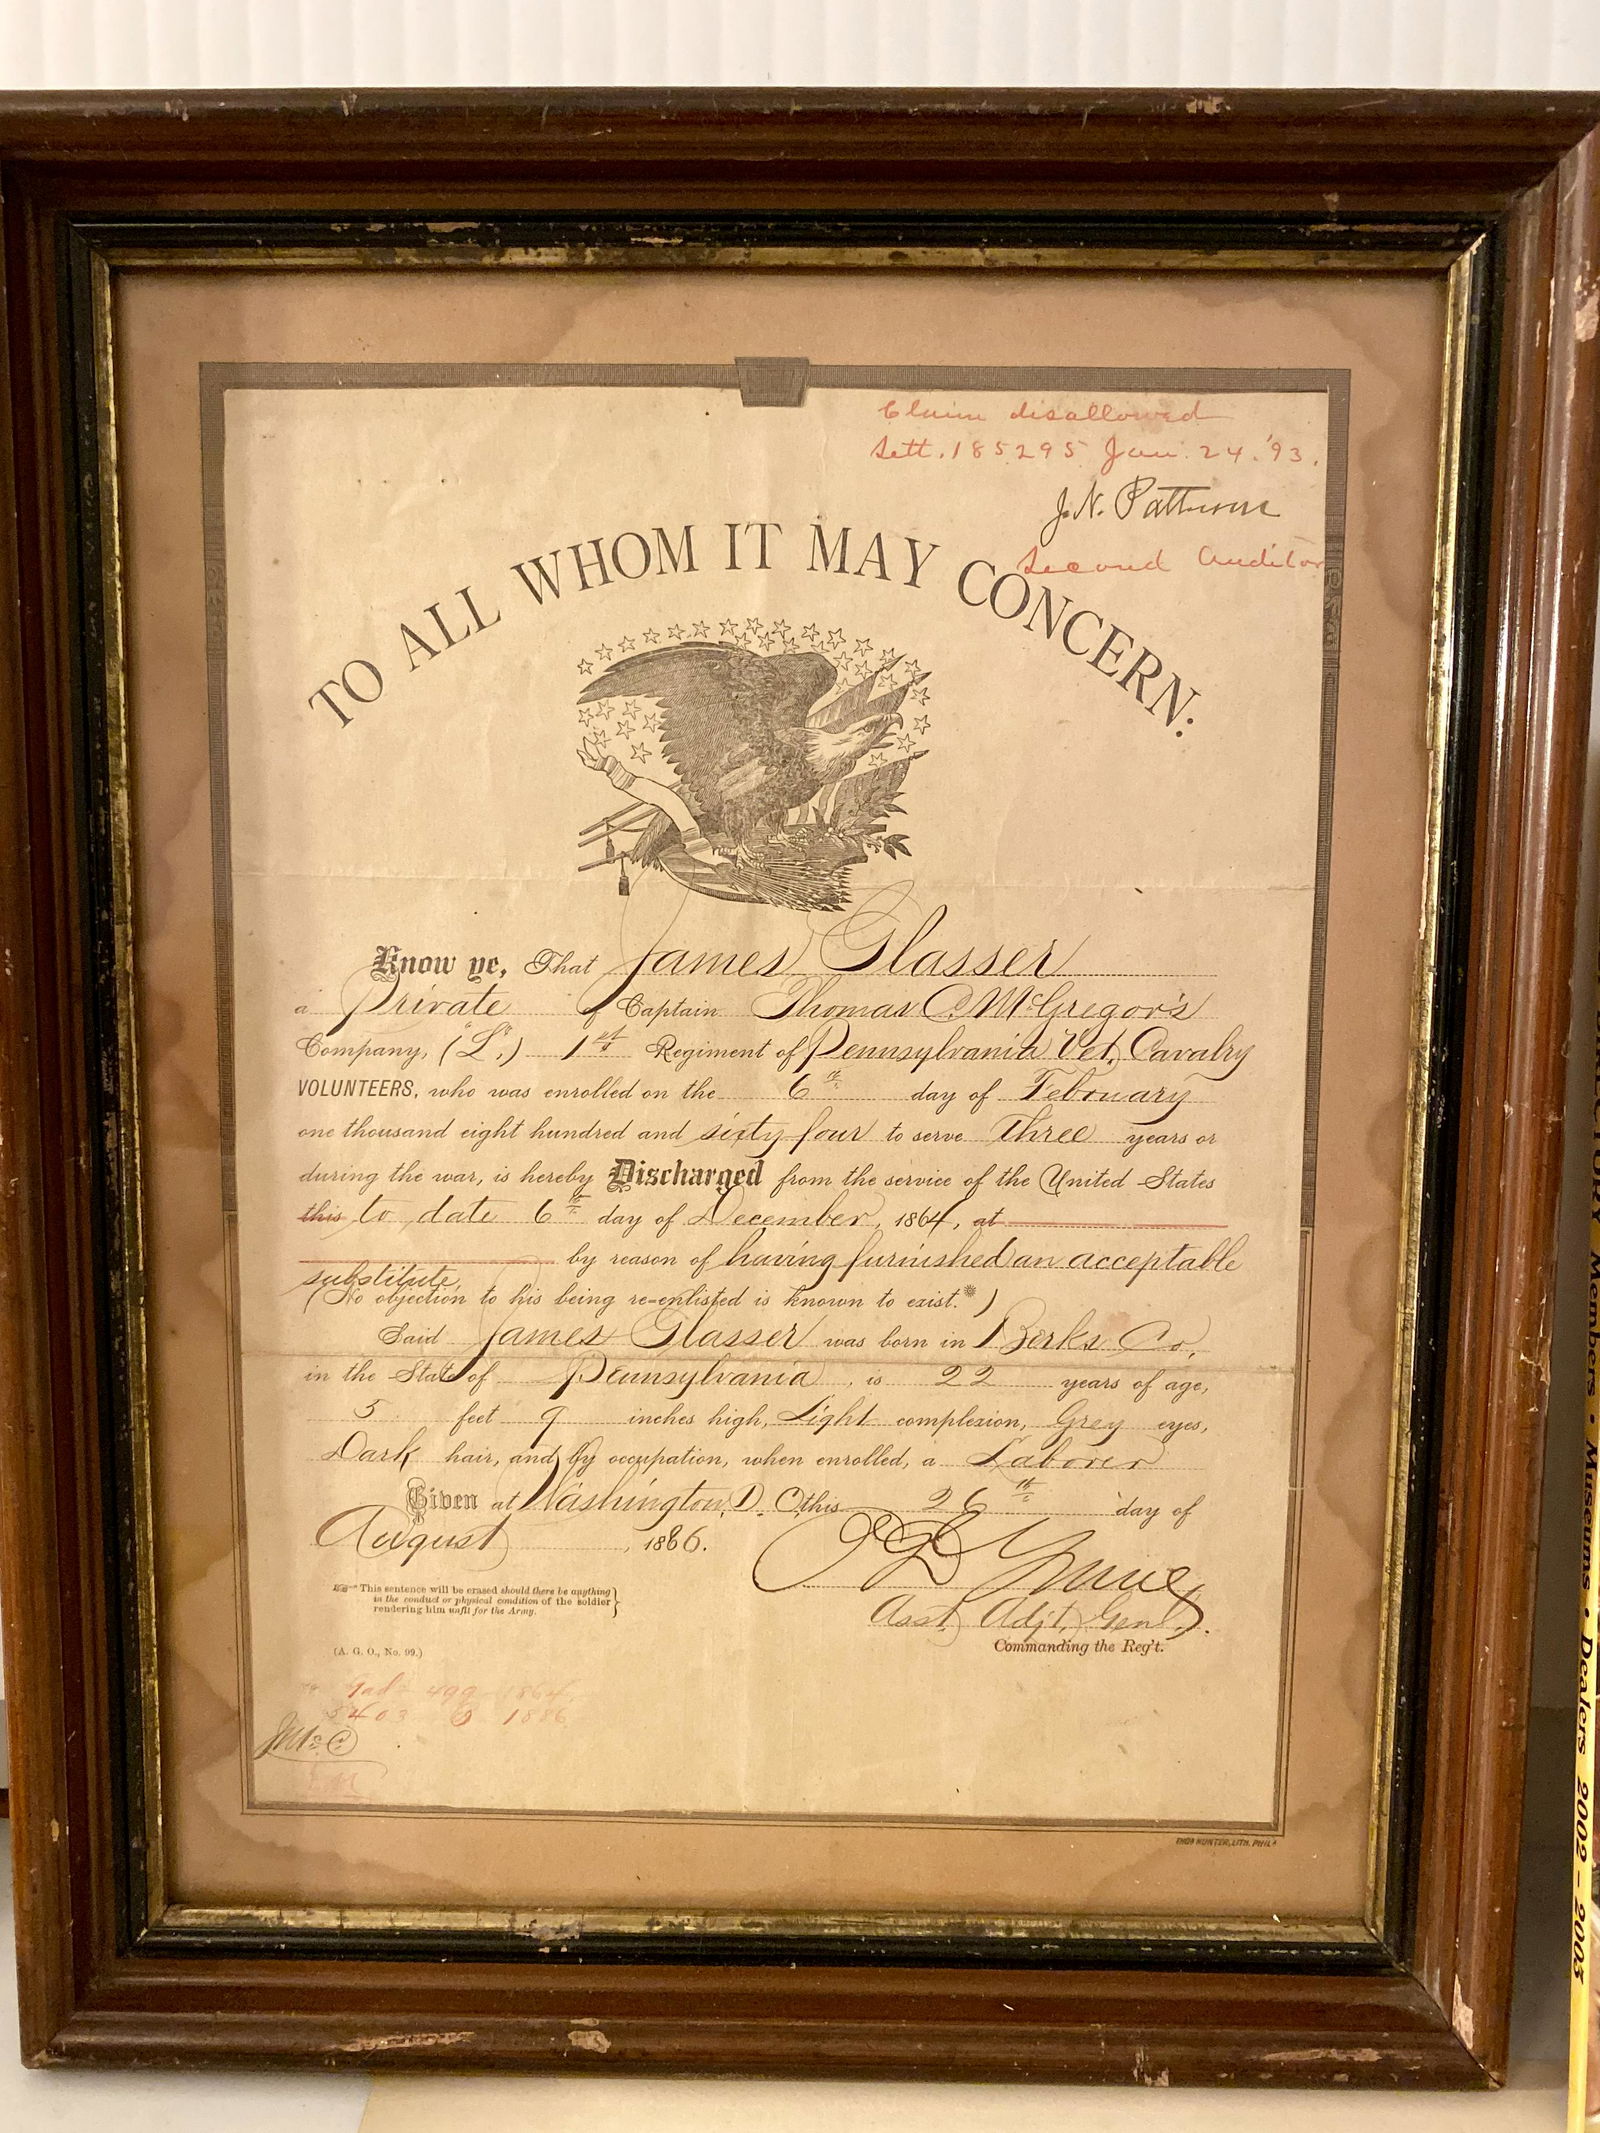 Claim disallowed
Sett. 185295 Jan. 24. '93.
J. N. Patterson
Second Auditor
TO ALL WHOM IT MAY CONCERN:
Know ye, That James Glasser
a Private of Captain Thomas C. McGregor's
Company, ("L".) 1st Regiment of Pennsylvania Vet. Cavalry
VOLUNTEERS, who was enrolled on the 6th day of February
one thousand eight hundred and sixty four to serve Three years or
during the war, is hereby Discharged from the service of the United States
this to date 6th day of December, 1864, at
by reason of having furnished an acceptable
substitute.
(No objection to his being re-enlisted is known to exist.*)
Said James Glasser was born in Berks Co,
in the State of Pennsylvania, is 22 years of age,
5 feet 9 inches high, Light complexion, Grey eyes,
Dark hair, and by occupation, when enrolled, a Laborer
Given at Washington, D. C. this 26th day of
August, 1886.
Asst. Adjt. Genl.
Commanding the Reg't.
This sentence will be erased should there be anything
in the conduct or physical condition of the soldier
rendering him unfit for the Army.
(A. G. O., No. 99.)
499 1864
5403 B 1886
THOS HUNTER, LITH. PHILA
Members • Museums • Dealers 2002 - 2003